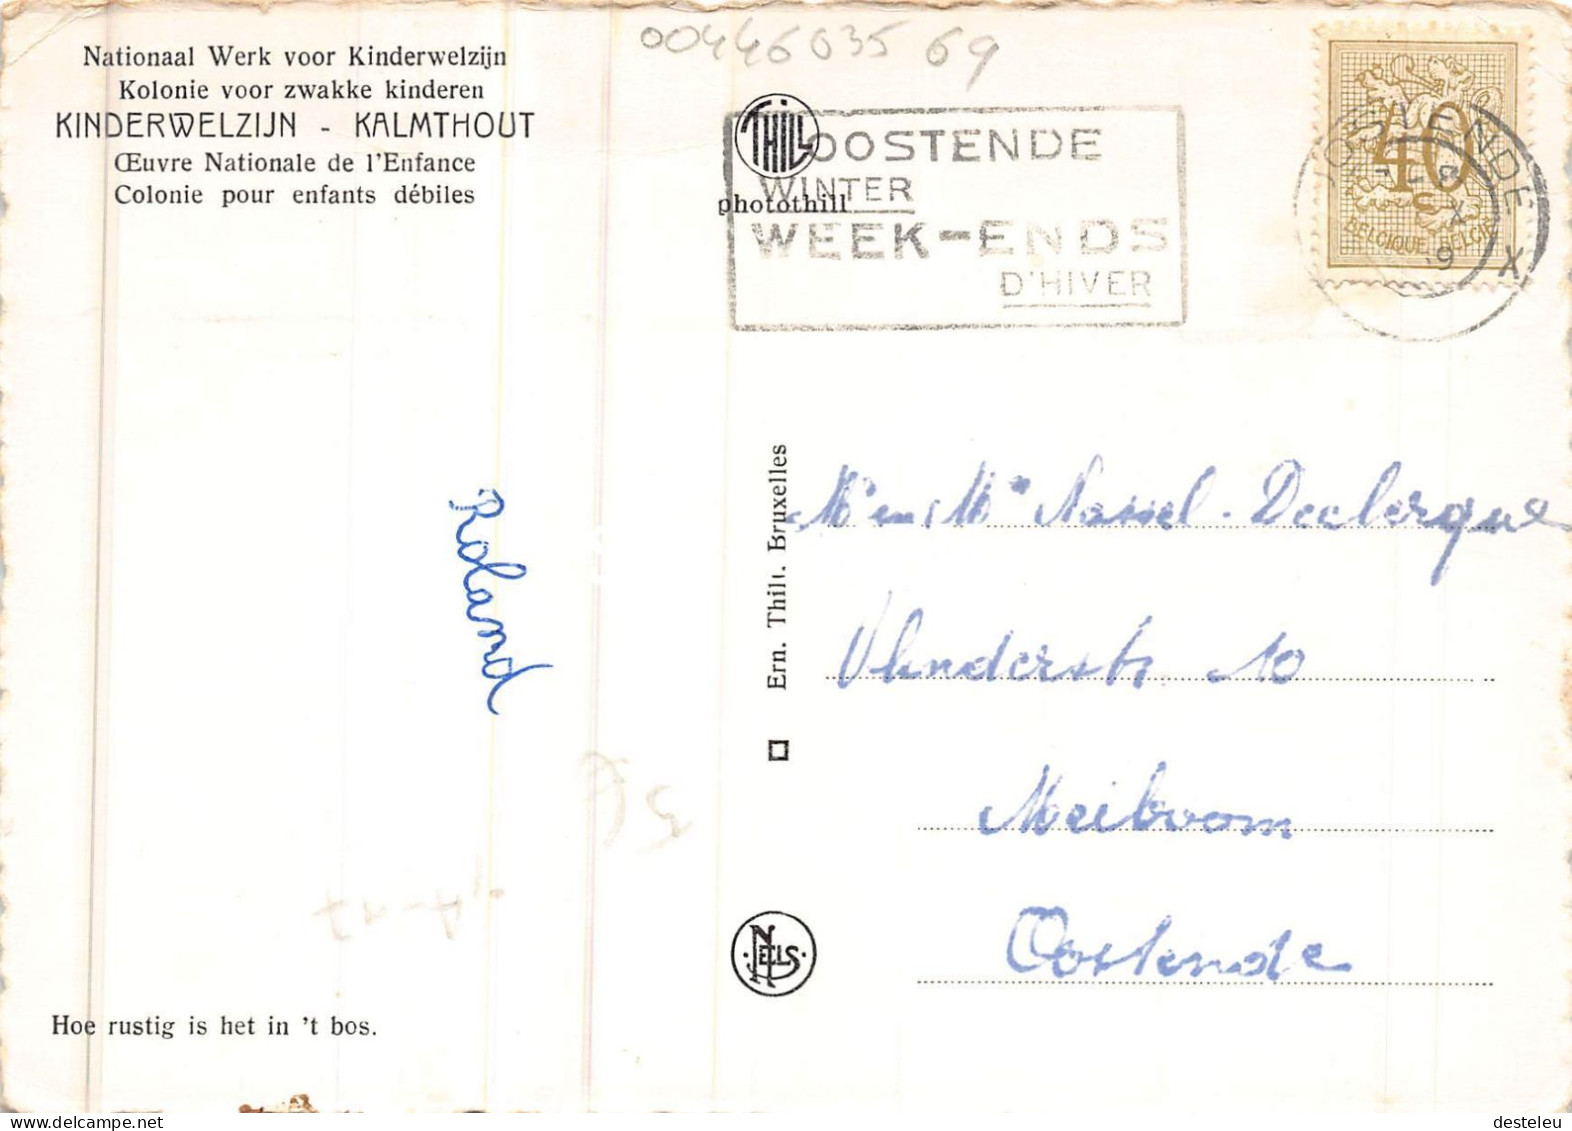 Nationaal Werk voor Kinderwelzijn
Kolonie voor zwakke kinderen
KINDERWELZIJN - KALMTHOUT
Œuvre Nationale de l'Enfance
Colonie pour enfants débiles
00446035 69
THILL
photothill
OOSTENDE
WINTER
WEEK-ENDS
D'HIVER
40
BELGIQUE BELGIE
OOSTENDE
X
Roland
Ern. Thill. Bruxelles
Mr en Me Nassel-Declerque
10
Meiboom
Oostende
5€
NELS
Hoe rustig is het in 't bos.
desteleu